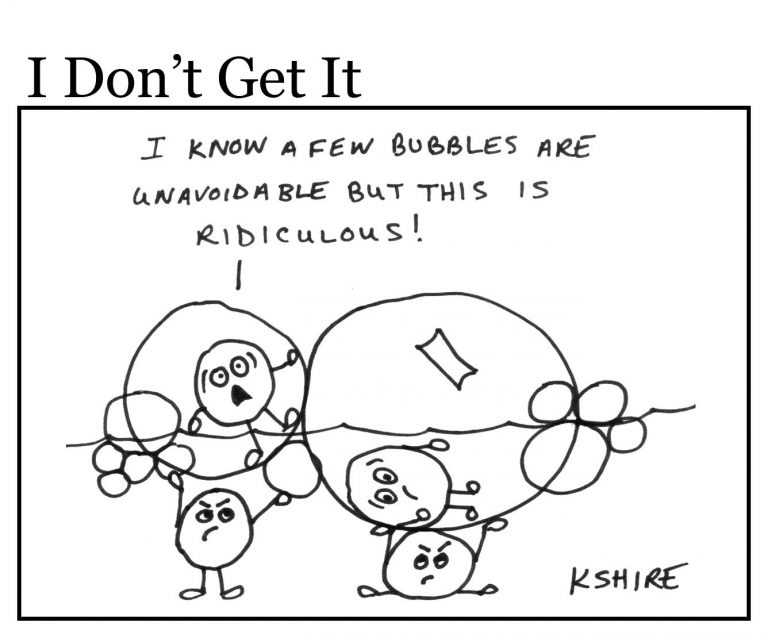 I Don’t Get It
I KNOW A FEW BUBBLES ARE
UNAVOIDABLE BUT THIS IS
RIDICULOUS!
KSHIRE